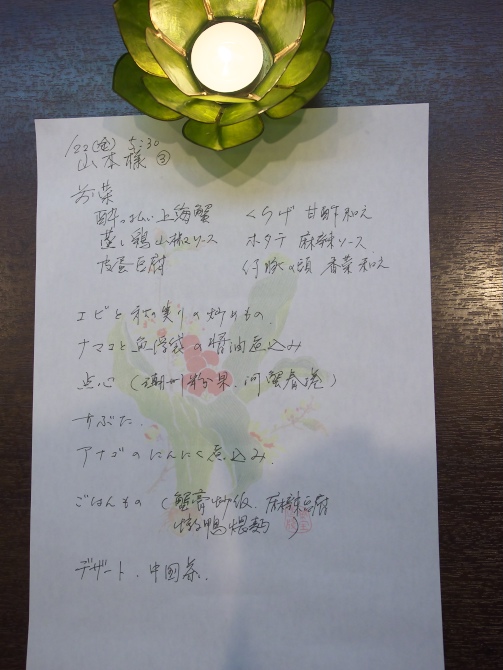 1/22(金) 5:30
山本様 ③
前菜
酔っぱい上海蟹 くらげ 甘酢和え
蒸し鶏山椒ソース ホタテ 麻辣ソース
皮蛋豆腐 何豚の頭 香菜和え
エビと秋の実りの炒めもの
ナマコと魚浮袋の醤油煮込み
点心(潮州粉果、河蟹春巻)
すぶた、
アナゴのにんにく煮込み、
ごはんもの(蟹膏炒飯、麻辣豆腐
鴨煨麺)
デザート、中国茶、